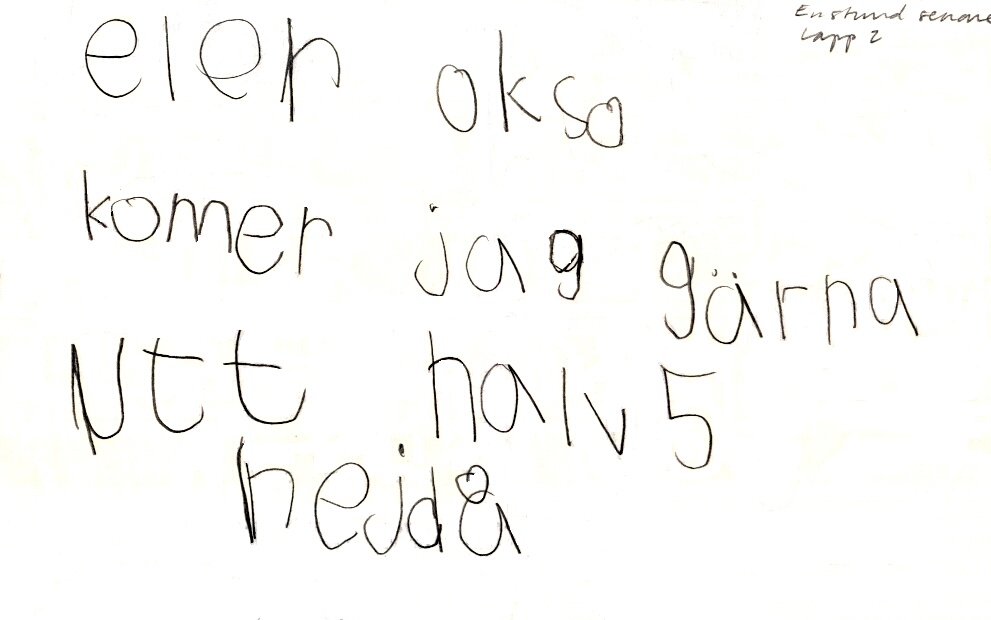 En stund senare
Lapp 2
eler oksa
komer jag gärna
utt halv 5
hejdå